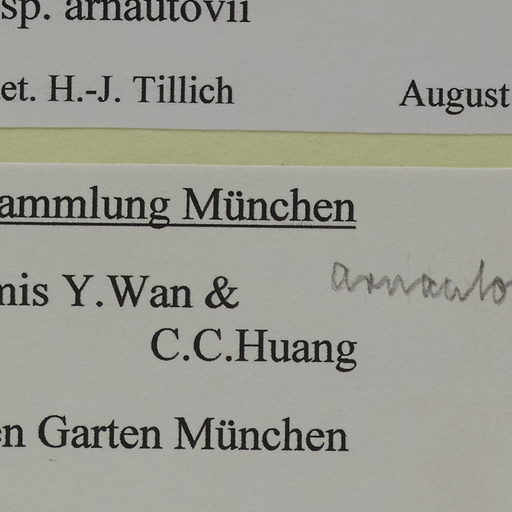 sp. arnautovii
et. H.-J. Tillich August
ammlung München
mis Y.Wan & arnauto
C.C.Huang
en Garten München